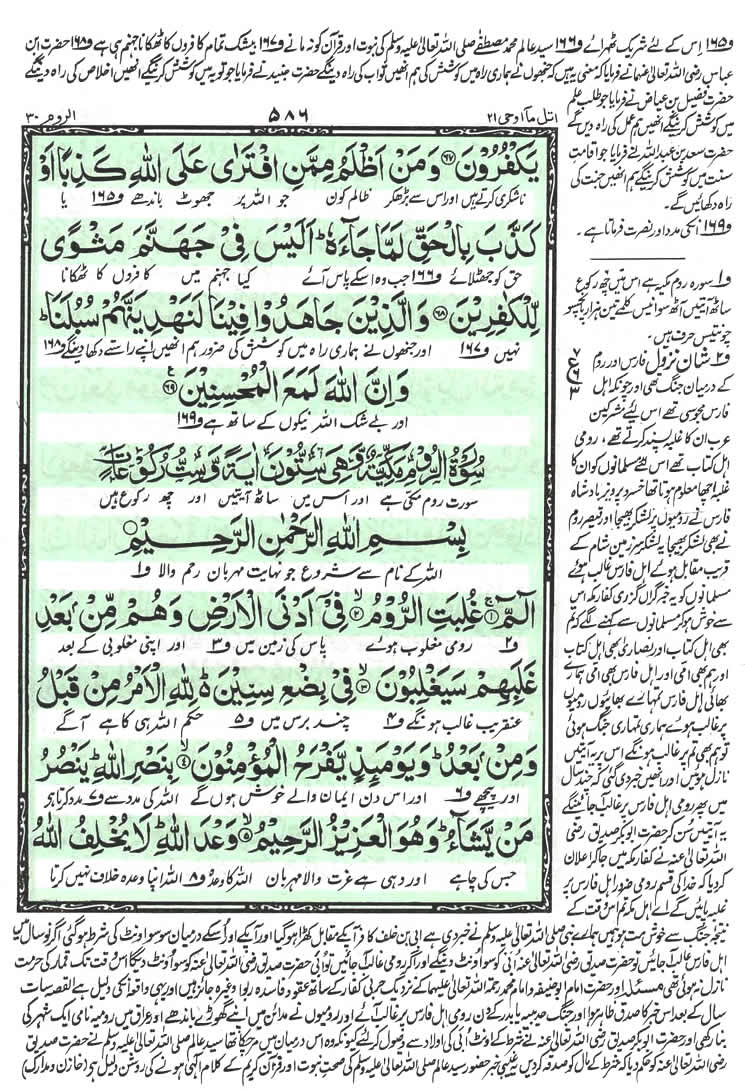 و۱۶۵ اس کے لئے شریک ٹھہرائے و۱۶۶ سید عالم محمد مصطفےٰ صلی اللہ تعالیٰ علیہ وسلم کی نبوت اور قرآن کو نہ مانے و۱۶۷ بیشک تمام کافروں کا ٹھکانا جہنم ہی ہے و۱۶۸ حضرت ابن
عباس رضی اللہ تعالیٰ عنہما نے فرمایا کہ معنی یہ ہیں کہ جنھوں نے ہماری راہ میں کوشش کی ہم انھیں ثواب کی راہ دینگے حضرت جنید نے فرمایا جو توبہ میں کوشش کرینگے انھیں اخلاص کی راہ دینگے
حضرت فضیل بن عیاض نے فرمایا جو طلب علم
میں کوشش کرینگے انھیں ہم عمل کی راہ دیں گے
حضرت سعد بن عبداللہ نے فرمایا جو اقامت
سنت میں کوشش کرینگے ہم انھیں جنت کی
راہ دکھائیں گے۔
و۱۶۹ انکی مدد اور نصرت فرماتا ہے۔
اتل مآ اوحی ۲۱
۵۸۶
الروم ۳۰
یَكْفُرُوْنَ ۶۷ وَمَنْ اَظْلَمُ مِمَّنِ افْتَرٰى عَلَى اللّٰهِ كَذِبًا اَوْ
ناشکری کرتے ہیں اور اس سے بڑھکر ظالم کون جو اللہ پر جھوٹ باندھے و۱۶۵ یا
كَذَّبَ بِالْحَقِّ لَمَّا جَآءَهٗ ؕ اَلَیْسَ فِیْ جَهَنَّمَ مَثْوًى
حق کو جھٹلائے و۱۶۶ جب وہ اسکے پاس آئے کیا جہنم میں کافروں کا ٹھکانا
لِّلْكٰفِرِیْنَ ۶۸ وَالَّذِیْنَ جَاهَدُوْا فِیْنَا لَنَهْدِیَنَّهُمْ سُبُلَنَا ؕ
نہیں و۱۶۷ اور جنھوں نے ہماری راہ میں کوشش کی ضرور ہم انھیں اپنے راستے دکھا دینگے و۱۶۸
وَاِنَّ اللّٰهَ لَمَعَ الْمُحْسِنِیْنَ ۶۹
اور بے شک اللہ نیکوں کے ساتھ ہے و۱۶۹
سُوْرَةُ الرُّوْمِ مَكِّیَّةٌ وَّهِیَ سِتُّوْنَ اٰیَةً وَّسِتُّ رُكُوْعَاتٍ
سورت روم مکی ہے اور اس میں ساٹھ آیتیں اور چھ رکوع ہیں
بِسْمِ اللّٰهِ الرَّحْمٰنِ الرَّحِیْمِ
اللہ کے نام سے شروع جو نہایت مہربان رحم والا و۱
الٓمّٓ ۱ غُلِبَتِ الرُّوْمُ ۲ فِیْۤ اَدْنَى الْاَرْضِ وَهُمْ مِّنْۢ بَعْدِ
و۲ رومی مغلوب ہوئے پاس کی زمین میں و۳ اور اپنی مغلوبی کے بعد
غَلَبِهِمْ سَیَغْلِبُوْنَ ۳ فِیْ بِضْعِ سِنِیْنَ ؕ لِلّٰهِ الْاَمْرُ مِنْ قَبْلُ
عنقریب غالب ہونگے و۴ چند برس میں و۵ حکم اللہ ہی کا ہے آگے
وَمِنْۢ بَعْدُ ؕ وَیَوْمَىٕذٍ یَّفْرَحُ الْمُؤْمِنُوْنَ ۴ بِنَصْرِ اللّٰهِ ؕ یَنْصُرُ
اور پیچھے و۶ اور اس دن ایمان والے خوش ہوں گے اللہ کی مدد سے و۷ مدد کرتا ہے
مَنْ یَّشَآءُ ؕ وَهُوَ الْعَزِیْزُ الرَّحِیْمُ ۵ وَعْدَ اللّٰهِ ؕ لَا یُخْلِفُ اللّٰهُ
جس کی چاہے اور وہی ہے عزت والا مہربان اللہ کا وعدہ و۸ اللہ اپنا وعدہ خلاف نہیں کرتا
و۱ سورہ روم مکیہ ہے اس میں چھ رکوع
ساٹھ آیتیں آٹھ سو انیس کلمے تین ہزار پانچسو
چونتیس حرف ہیں۔
و۲ شان نزول فارس اور روم
کے درمیان جنگ تھی اور چونکہ اہل
فارس مجوسی تھے اس لئے مشرکین
عرب ان کا غلبہ پسند کرتے تھے، رومی
اہل کتاب تھے اس لئے مسلمانوں کو ان کا
غلبہ اچھا معلوم ہوتا تھا خسرو پرویز بادشاہ
فارس نے رومیوں پر لشکر بھیجا اور قیصر روم
نے بھی لشکر بھیجا یہ لشکر سرزمین شام کے
قریب مقابل ہوئے اہل فارس غالب ہوئے
مسلمانوں کو یہ خبر گراں گزری کفار مکہ اس
سے خوش ہو کر مسلمانوں سے کہنے لگے کہ تم
بھی اہل کتاب اور نصاریٰ بھی اہل کتاب
اور ہم بھی امی اور اہل فارس بھی امی ہمارے
بھائی اہل فارس تمہارے بھائیوں رومیوں
پر غالب ہوئے ہماری تمہاری جنگ ہوئی
تو ہم بھی تم پر غالب ہونگے اس پر یہ آیتیں
نازل ہوئیں اور انھیں خبر دی گئی کہ چند سال
میں پھر رومی اہل فارس پر غالب آجائینگے
یہ آیتیں سن کر حضرت ابوبکر صدیق رضی
اللہ تعالیٰ عنہ نے کفار مکہ میں جا کر اعلان
کر دیا کہ خدا کی قسم رومی ضرور اہل فارس پر
غلبہ پائیں گے اے اہل مکہ تم اس وقت کے
نتیجۂ جنگ سے خوش مت ہو ہمیں ہمارے نبی صلی اللہ تعالیٰ علیہ وسلم نے خبر دی ہے ابی بن خلف کافر آپکے مقابل کھڑا ہو گیا اور آپکے اور اسکے درمیان سو سو اونٹ کی شرط ہو گئی اگر نو سال میں
اہل فارس غالب آجائیں تو حضرت صدیق رضی اللہ تعالیٰ عنہ ابی کو سو اونٹ دینگے اور اگر رومی غالب آجائیں تو ابی حضرت صدیق رضی اللہ تعالیٰ عنہ کو سو اونٹ دیگا اس وقت تک قمار کی حرمت
نازل نہ ہوئی تھی مسئلہ اور حضرت امام ابو حنیفہ و امام محمد رحمۃ اللہ تعالیٰ علیہما کے نزدیک حربی کفار کے ساتھ عقود فاسدہ ربوا وغیرہ جائز ہیں اور یہی واقعہ انکی دلیل ہے القصہ سات
سال کے بعد اس خبر کا صدق ظاہر ہوا اور جنگ حدیبیہ یا بدر کے دن رومی اہل فارس پر غالب آئے اور رومیوں نے مدائن میں اپنے گھوڑے باندھے اور عراق میں رومیہ نامی ایک شہر کی
بنا رکھی اور حضرت ابوبکر صدیق رضی اللہ تعالیٰ عنہ نے شرط کے اونٹ ابی کی اولاد سے وصول کر لئے کیونکہ وہ اس درمیان میں مر چکا تھا سید عالم صلی اللہ تعالیٰ علیہ وسلم نے حضرت صدیق
رضی اللہ تعالیٰ عنہ کو حکم دیا کہ شرط کے مال کو صدقہ کر دیں یہ غیبی خبر حضور سید عالم صلی اللہ تعالیٰ علیہ وسلم کی صحت نبوت اور قرآن کریم کے کلام الٰہی ہونے کی روشن دلیل ہے (خازن و مدارک)